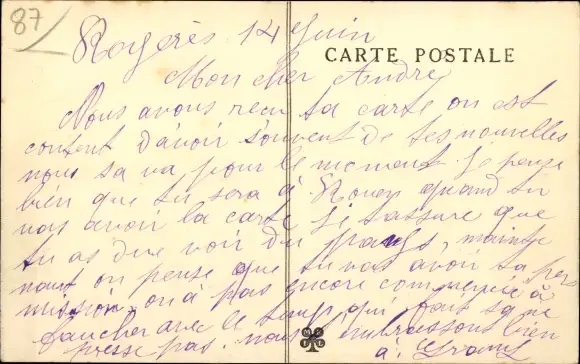 87
Royères 14 Juin
CARTE POSTALE
Mon cher André
Nous avons recu ta carte on est
content davoir souvent de tes nouvelles
nous sa va pour le moment. je pense
bien que tu sera à Rouen quand tu
vas avoir la carte Je tassure que
tu as due voir du pays, mainte
nant on pense que tu vas avoir ta per
mission. on à pas encore commencé à
faucher avec le temps qui fait sa ne
presse pas. nous embrassons bien
à